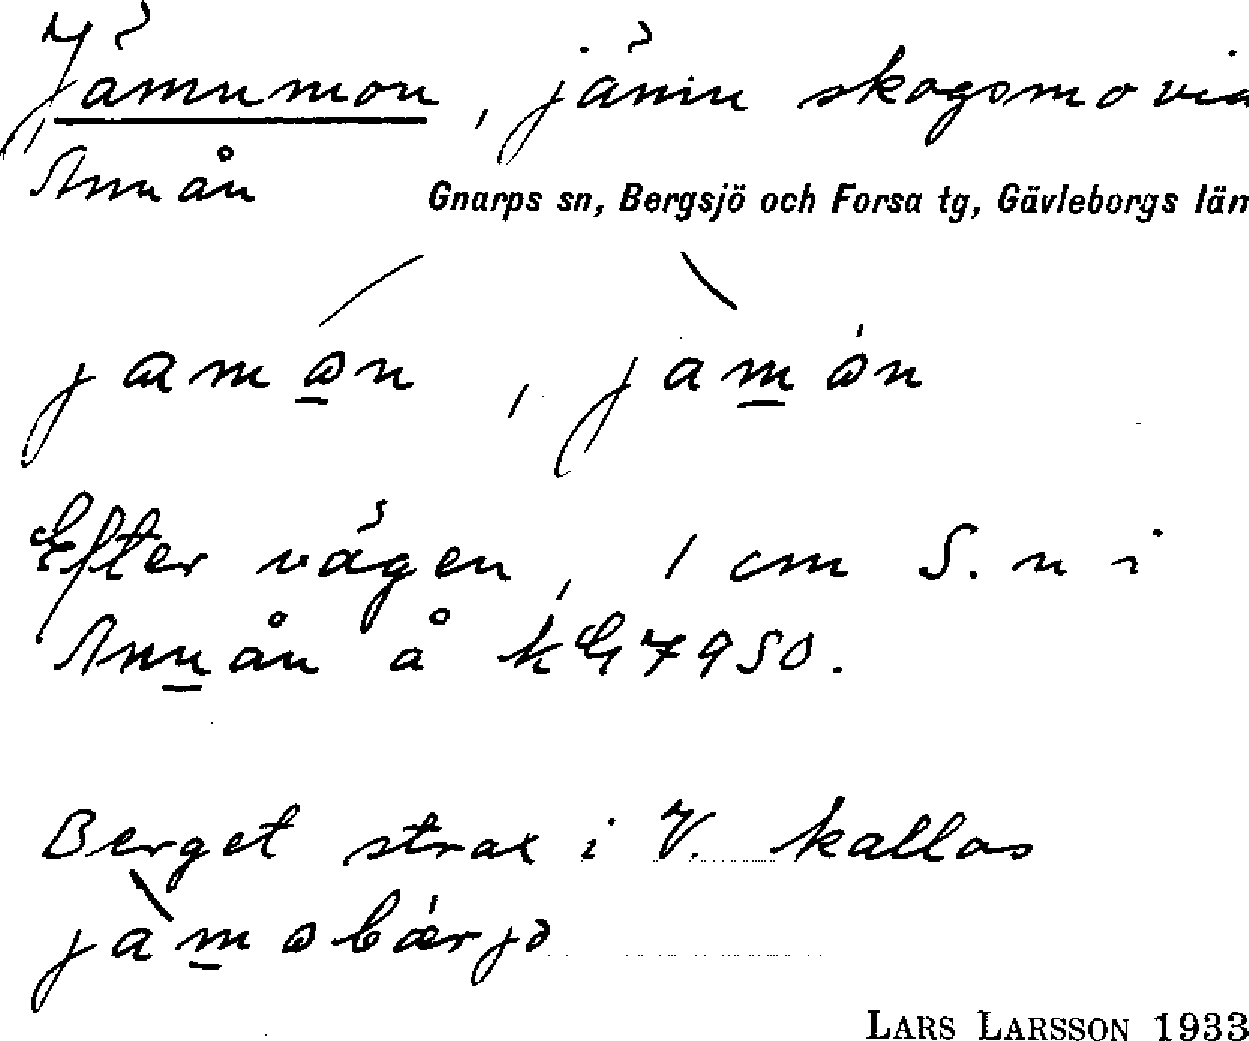 Jämnmon, jämn skogsmo vid
Annån
Gnarps sn, Bergsjö och Forsa tg, Gävleborgs län
Efter vägen, 1 cm S. n i
Annån å kG 7950.
Berget strax i V. kallas
LARS LARSSON 1933